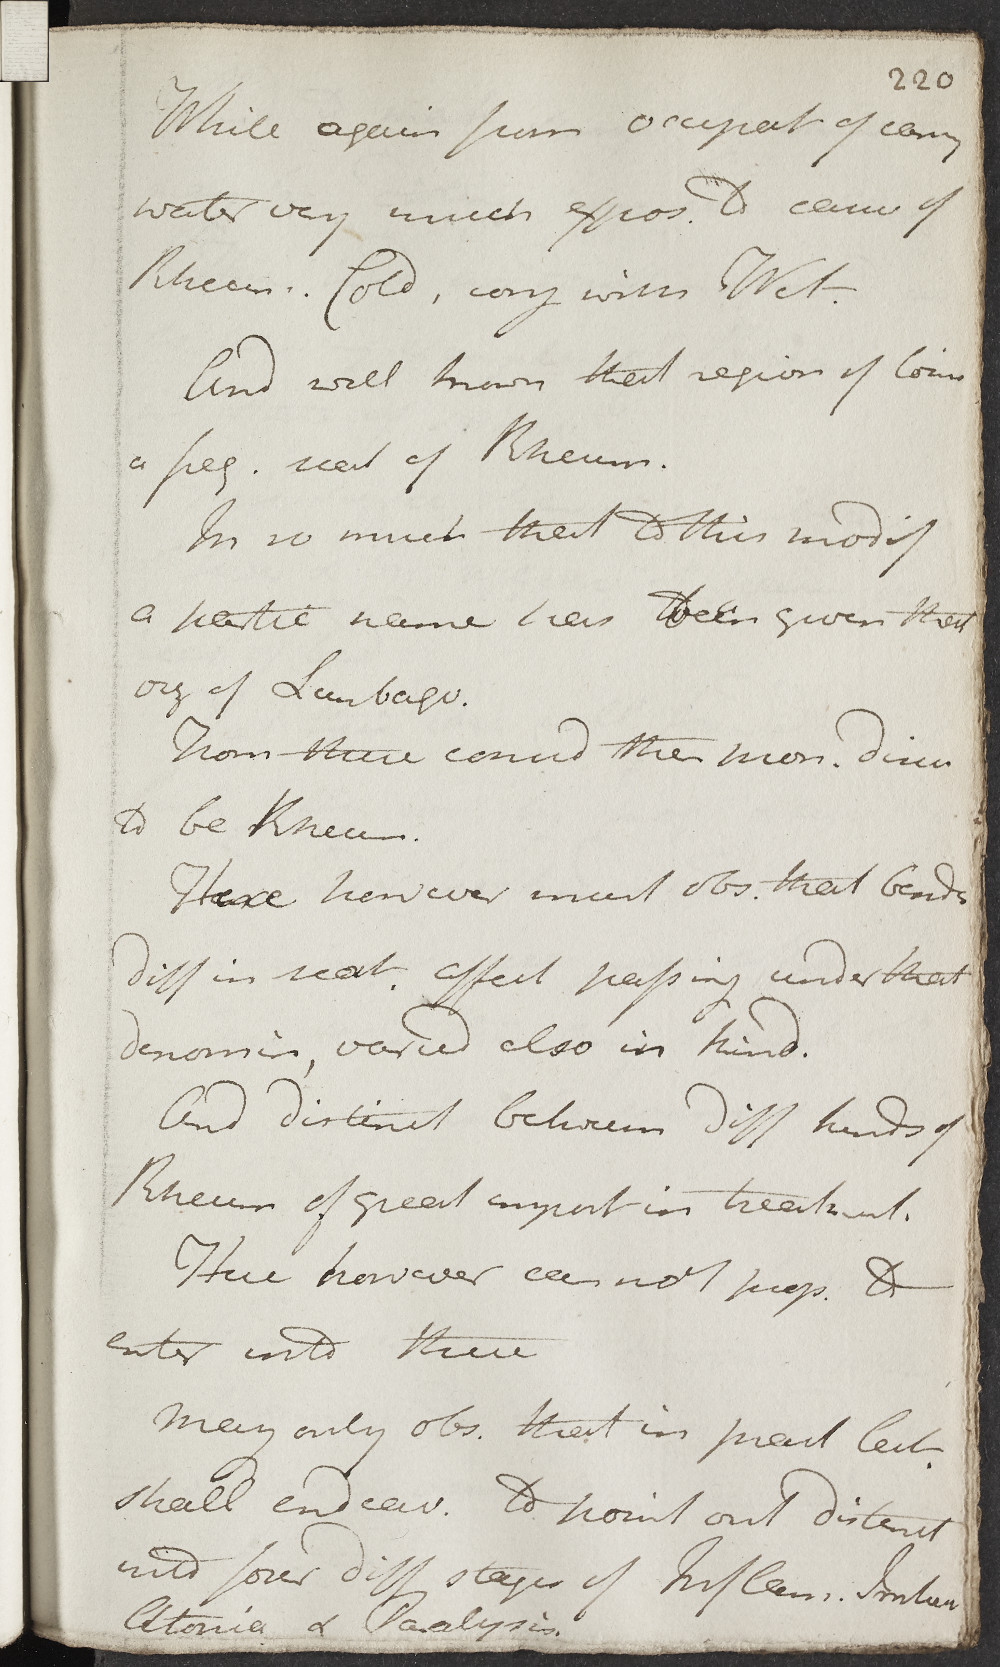 220
While again from occupat of carry
water very much expos. to cause of
Rheum. Cold, conj with Wet.
And well known that region of loins
a freq. seat of Rheum.
In so much that to this modif
a partic name has been given that
of Lumbago.
From these consid then mon. disea
to be Rheum.
Here however must obs. that besides
diff in seat. affect passing under that
denomin, varied also in kind.
And distinct between diff kinds of
Rheum of great import in treatment.
Here however can not prop. to
enter into these
May only obs. that in pract lect.
shall endeav. to point out distinct
into four diff stages of Inflam.
Atonia & Paralysis.